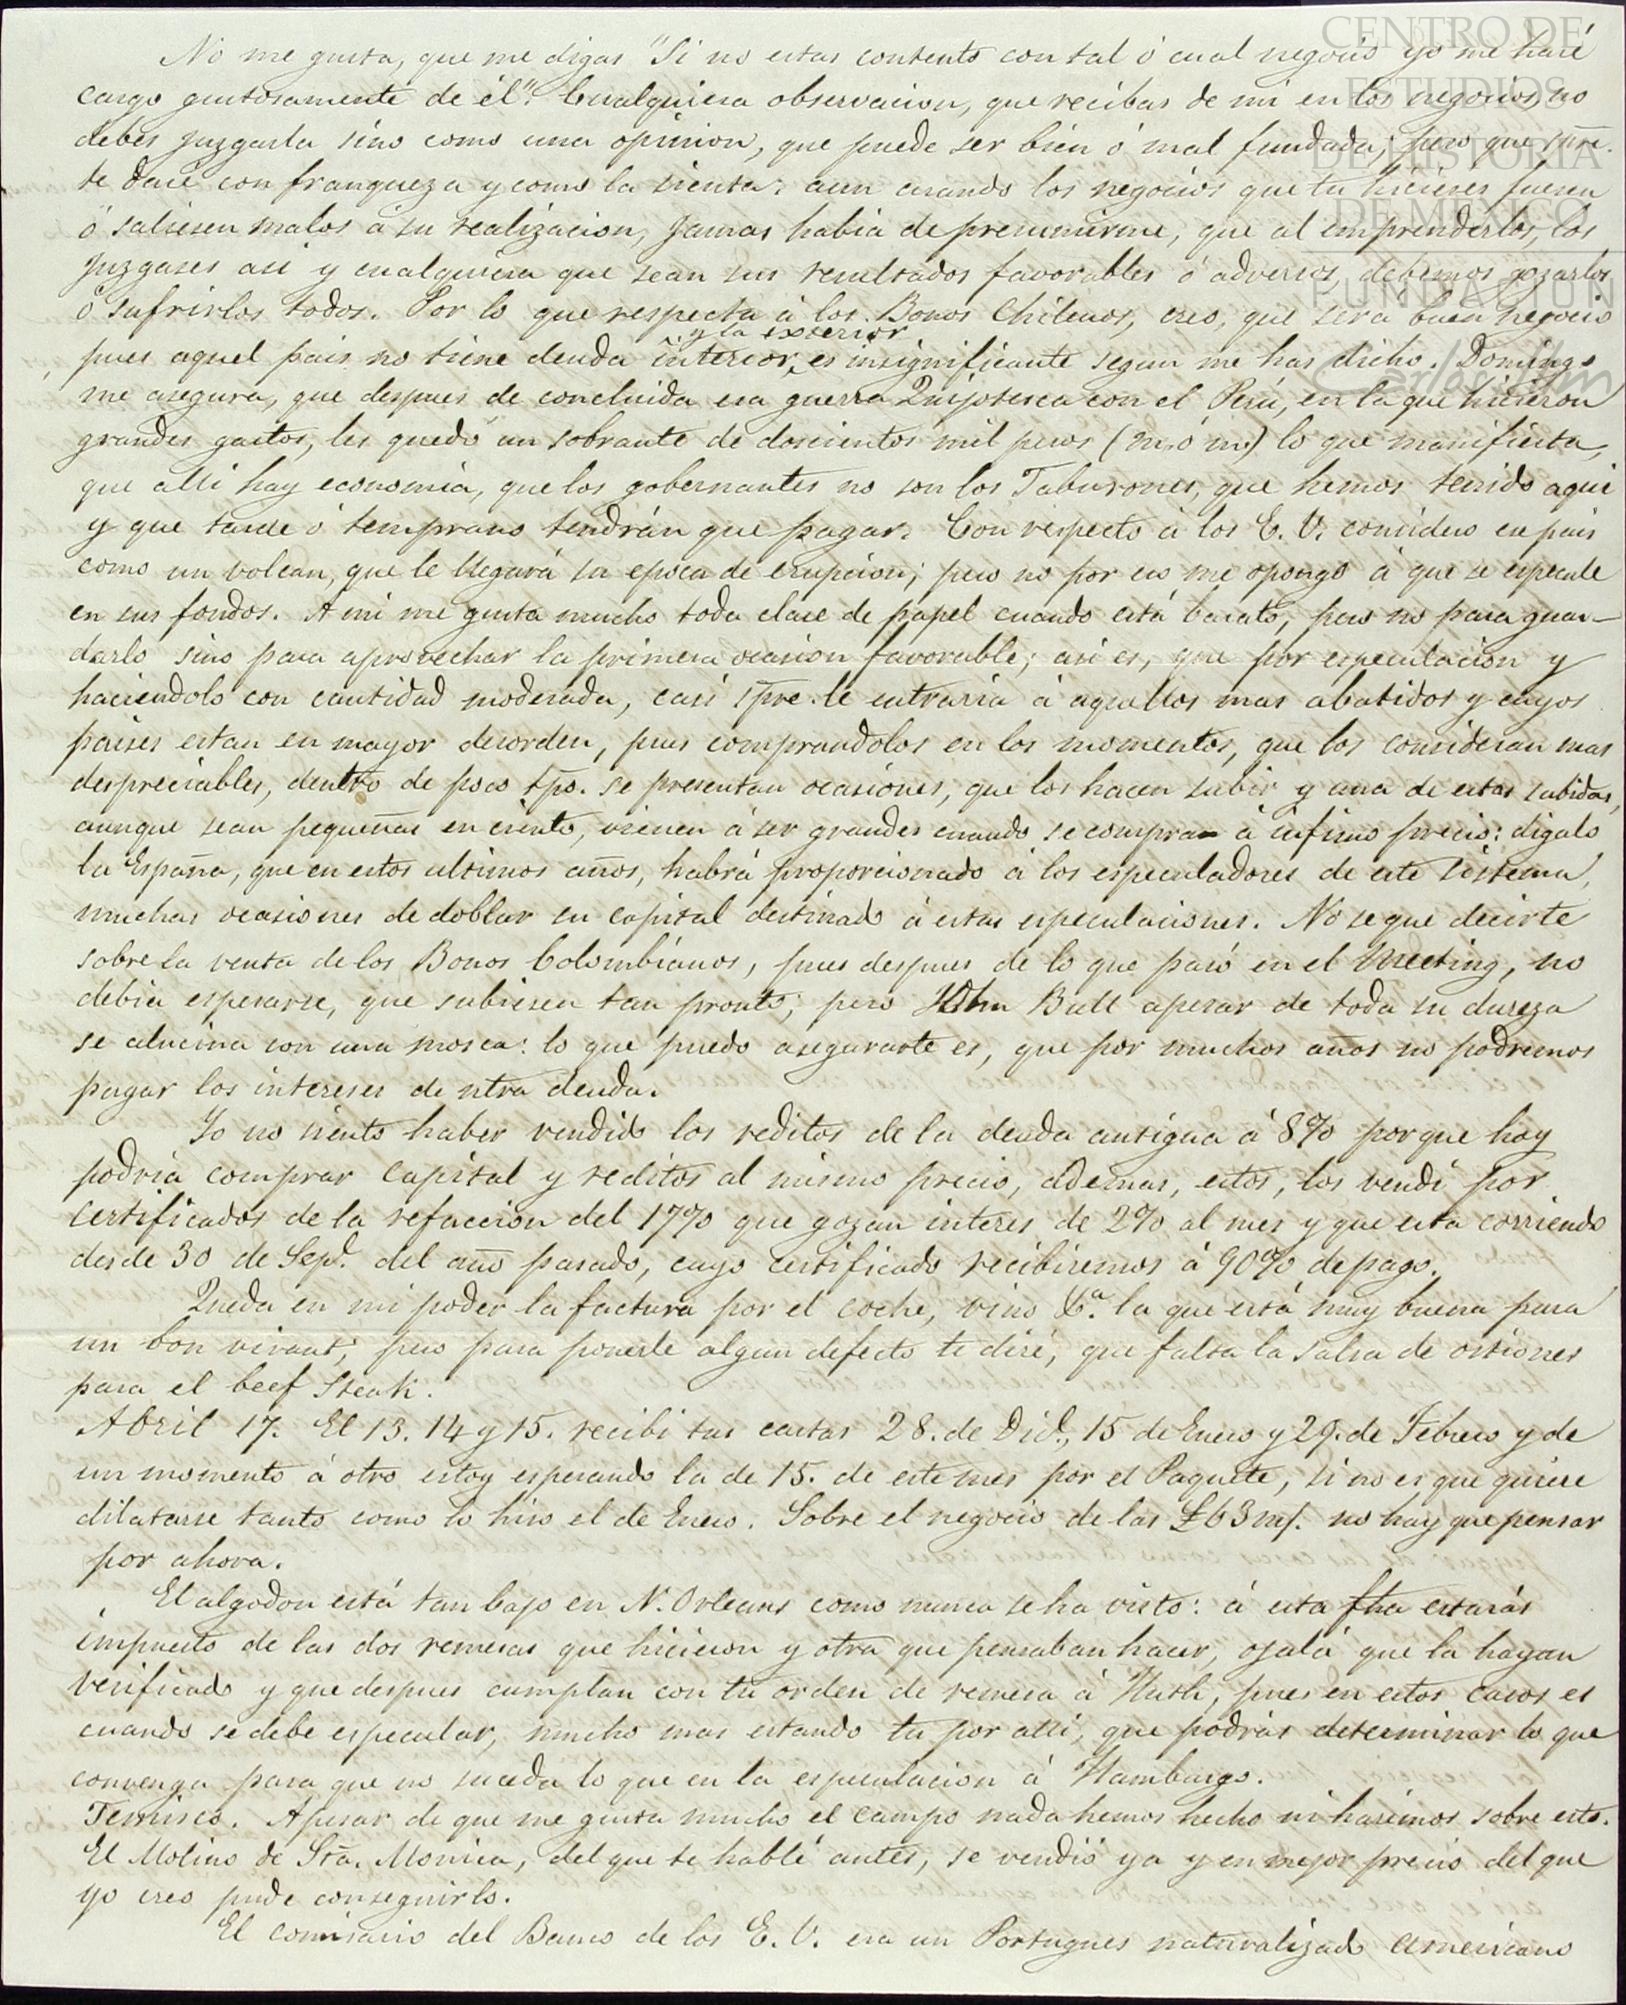 No me gusta, que me digas "Si no estas contento con tal ó cual negocio yo me haré
cargo gustosamente de él". Cualquiera observacion, que recibas de mi en los negocios, no
debes juzgarla sino como una opinion, que puede ser bien ó mal fundada; pero que spre.
te daré con franqueza y como la sienta: aun cuando los negocios que tu hicieses fuesen
ó saliesen malos á su realizacion, jamas habia de presumirme, que al emprenderlos, los
juzgases asi y cualquiera que sean sus resultados favorables ó adversos, debemos gozarlos
ó sufrirlos todos. Por lo que respecta á los Bonos Chilenos, creo, que será buen negocio
y la exterior
pues aquel pais no tiene deuda interior, es insignificante segun me has dicho. Domingo
me asegura, que despues de concluida esa guerra Quijotesca con el Perú, en la que hicieron
grandes gastos, les quedó un sobrante de doscientos mil pesos (m. ó m.) lo que manifiesta,
que alli hay economia, que los gobernantes no son los Taburones, que hemos tenido aqui
y que tarde ó temprano tendrán que pagar. Con respecto á los E. U. considero ese pais
como un volcan, que le llegará su epoca de erupcion; pero no por eso me opongo á que se especule
en sus fondos. A mi me gusta mucho toda clase de papel cuando está barato, pero no para guar-
darlo sino para aprovechar la primera ocasion favorable; asi es, que por especulacion y
haciendolo con cantidad moderada, casi spre. le entraria á aquellos mas abatidos y cuyos
paises estan en mayor desorden, pues comprandolos en los momentos, que los consideran mas
despreciables, dentro de poco tpo. se presentan ocasiones, que los hacen subir y una de estas subidas,
aunque sean pequeñas en ciento, vienen á ser grandes cuando se compran á infimo precio: digalo
la España, que en estos ultimos años, habrá proporcionado á los especuladores de este sistema,
muchas ocasiones de doblar su capital destinado á estas especulaciones. No se que decirte
sobre la venta de los Bonos Colombianos, pues despues de lo que pasó en el Meeting, no
debia esperarse, que subiesen tan pronto; pero John Bull apesar de toda su dureza
se alucina con una mosca: lo que puedo asegurarte es, que por muchos años no podremos
pagar los intereses de ntra deuda.
Yo no siento haber vendido los reditos de la deuda antigua á 8% porque hoy
podria comprar capital y reditos al mismo precio, ademas, estos, los vendi por
certificados de la refaccion del 17% que gozan interes de 2% al mes y que esta corriendo
desde 30 de Sepe. del año pasado, cuyo certificado recibiremos á 90% de pago.
Queda en mi poder la factura por el coche, vino &a. la que está muy buena para
un bon vivant; pero para ponerle algun defecto te diré, que falta la salsa de ostiones
para el beef Steak.
Abril 17. El 13. 14 y 15. recibi tus cartas 28. de Dice., 15 de Enero y 29. de Febrero y de
un momento á otro estoy esperando la de 15. de este mes por el Paquete, si no es que quiere
dilatarse tanto como lo hiso el de Enero. Sobre el negocio de las £63 m/. no hay que pensar
por ahora.
El algodon está tan bajo en N. Orleans como nunca se ha visto: á esta fha estarás
impuesto de las dos remesas que hicieron y otra que pensaban hacer, ojalá que la hayan
verificado y que despues cumplan con tu orden de remesa á Huth, pues en estos casos es
cuando se debe especular, mucho mas estando tu por alli, que podrás determinar lo que
convenga para que no suceda lo que en la especulacion á Hamburgo.
Temisco. Apesar de que me gusta mucho el campo nada hemos hecho ni harémos sobre esto.
El Molino de Sta. Monica, del que te hablé antes, se vendió ya y en mejor precio del que
yo creo pude conseguirlo.
El comisario del Banco de los E. U. era un Portugues naturalizado americano
CENTRO DE
ESTUDIOS
DE HISTORIA
DE MÉXICO
FUNDACIÓN
Carlos Slim